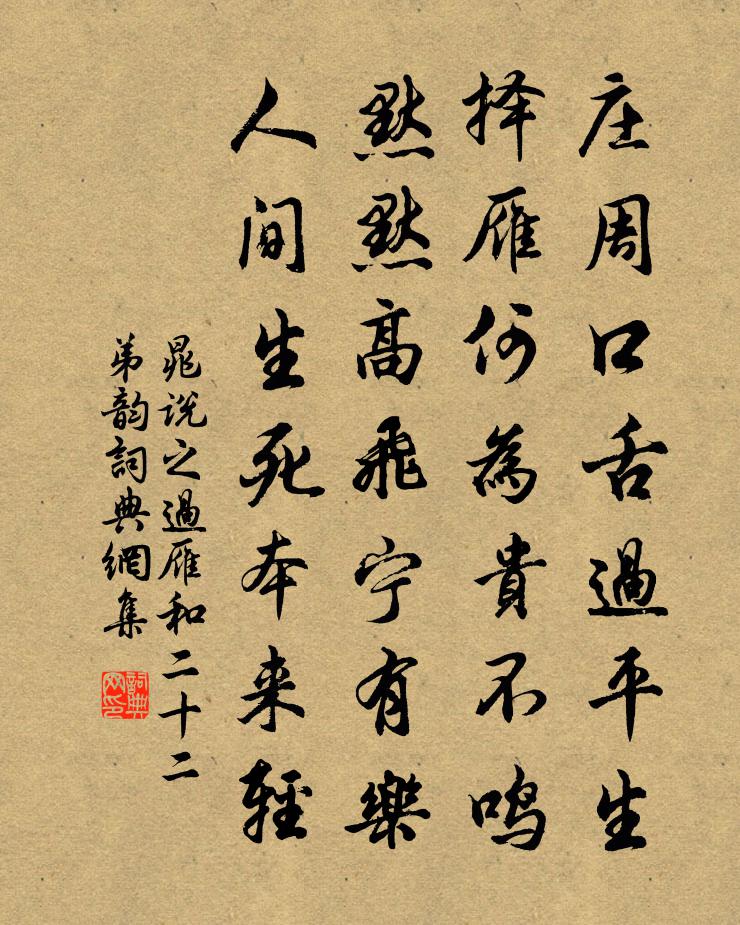 庄周口舌過平生
择雁何為貴不鸣
默默高飛宁有樂
人间生死本来輕
晁说之過雁和二十二
弟韵詞典網集
詞典网印